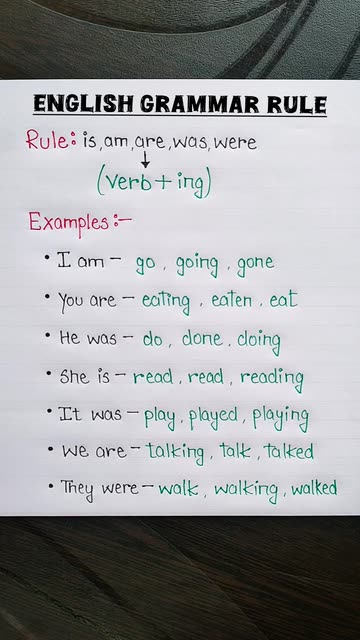 ENGLISH GRAMMAR RULE
Rule: is, am, are, was, were
(verb + ing)
Examples:-
• I am - go, going, gone
• You are - eating, eaten, eat
• He was - do, done, doing
• She is - read, read, reading
• It was - play, played, playing
• We are - talking, talk, talked
• They were - walk, walking, walked